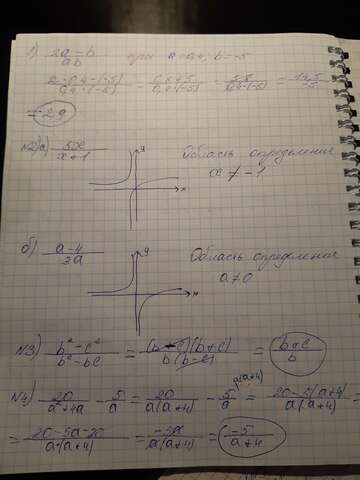 1) (2a - b)/(ab) при a = 0,4; b = -5
(2·0,4-(-5))/(0,4·(-5)) = (0,8+5)/(0,4·(-5)) = 5,8/(0,4·(-5)) =
= -2,9
№2) а) 5x/(x+1) Область определения
y
x ≠ -1
x
б) (a-4)/(3a) Область определения
y
a≠0
x
№3) (b² - c²)/(b² - bc) = ((b-c)(b+c))/(b(b-c)) = (b+c)/b
№4) 20/(a²+4a) - 5/a = 20/(a(a+4)) - 5/a (a+4) = (20-5(a+4))/(a(a+4)) =
= (20-5a-20)/(a·(a+4)) = -5a/(a(a+4)) = -5/(a+4)